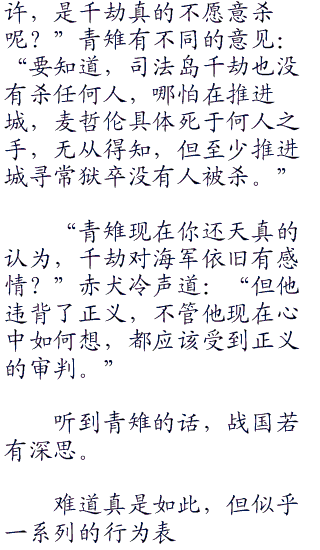 许，是千劫真的不愿意杀
呢？”青雉有不同的意见：
“要知道，司法岛千劫也没
有杀任何人，哪怕在推进
城，麦哲伦具体死于何人之
手，无从得知，但至少推进
城寻常狱卒没有人被杀。”
“青雉现在你还天真的
认为，千劫对海军依旧有感
情？”赤犬冷声道：“但他
违背了正义，不管他现在心
中如何想，都应该受到正义
的审判。”
听到青雉的话，战国若
有深思。
难道真是如此，但似乎
一系列的行为表